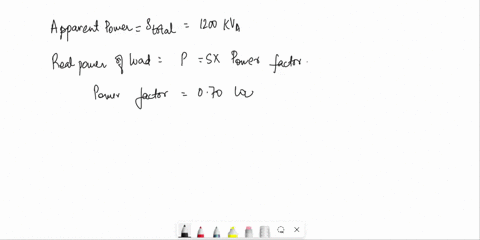 Apparent Power = Stotal = 1200 KVA
Real power of load = P = SX Power factor.
Power factor = 0.70